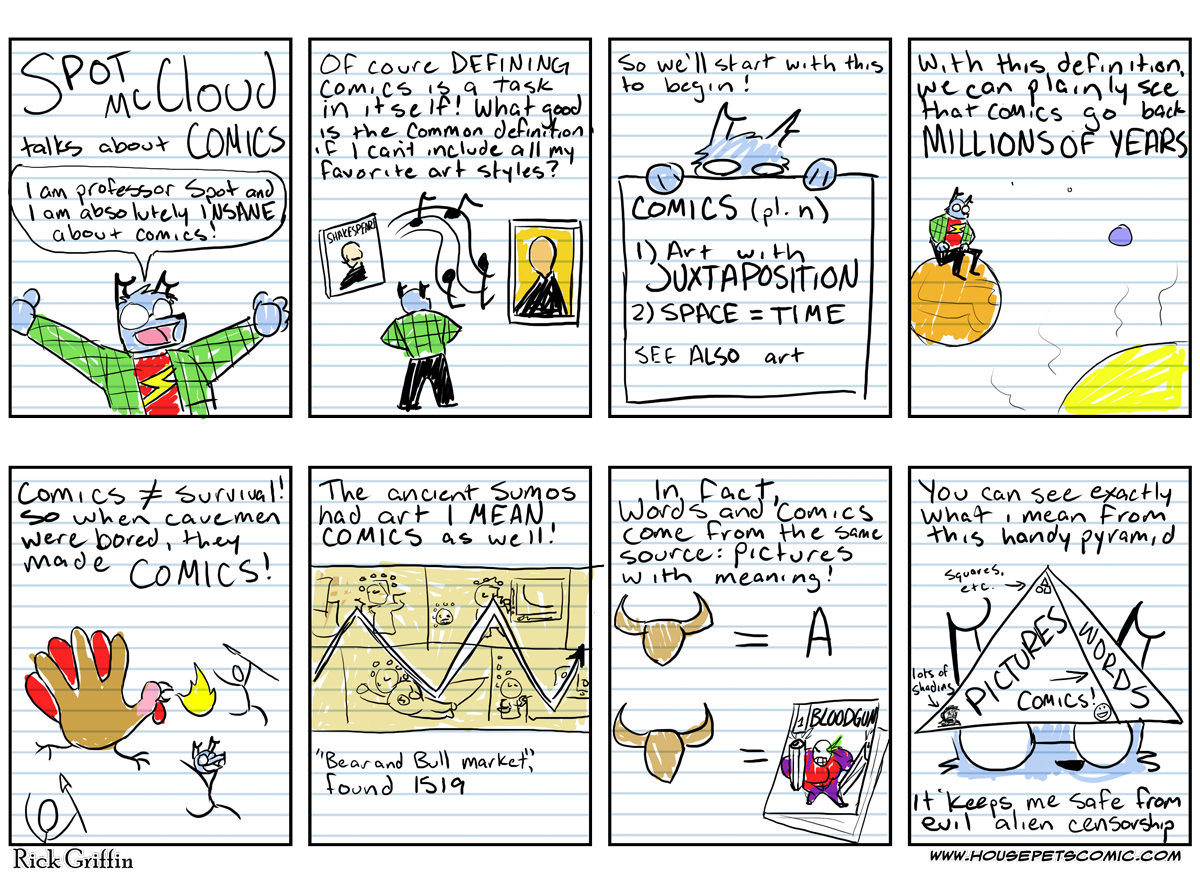 SPOT
McCloud
talks about COMICS
I am professor Spot and
I am absolutely INSANE
about comics!
OF coure DEFINING
comics is a task
in itself! What good
is the common definition
if I can't include all my
favorite art styles?
SHAKESPEARE
So we'll start with this
to begin!
COMICS (pl. n)
1) Art with
JUXTAPOSITION
2) SPACE = TIME
SEE ALSO art
With this definition,
we can plainly see
that comics go back
MILLIONS OF YEARS
Comics ≠ survival!
So when cavemen
were bored, they
made COMICS!
The ancient Sumos
had art I MEAN
COMICS as well!
"Bear and Bull market",
found 1519
In fact,
Words and Comics
come from the same
source: pictures
with meaning!
= A
=
1 BLOODGUN
You can see exactly
what i mean from
this handy pyramid
squares,
etc.
PICTURES
WORDS
lots of
shading
COMICS!
It keeps me safe from
evil alien censorship
Rick Griffin
www.housepetscomic.com